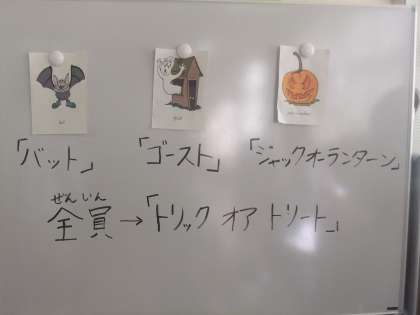 「バット」 「ゴースト」 「ジャックオーランターン」
ぜんいん
全員→「トリック オア トリート」